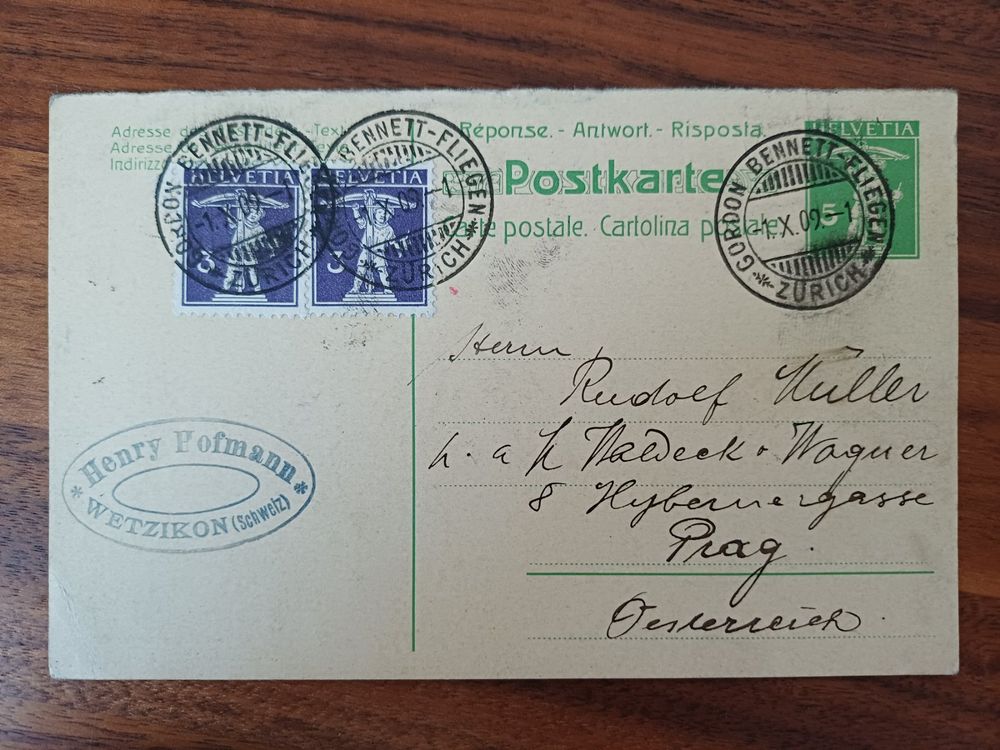 Réponse. - Antwort. - Risposta.
Postkarte
Carte postale. Cartolina postale.
Adresse
Adresse
Indirizzo
HELVETIA
5
GORDON BENNETT-FLIEGEN
-1.X.09.5-1
* ZÜRICH *
HELVETIA
3
GORDON BENNETT-FLIEGEN
-1.X.09.
* ZÜRICH *
HELVETIA
3
BENNETT-FLIEGEN
X.09.-1
* ZÜRICH *
Herrn
Rudolf Müller
Waldeck & Wagner
8 Hybernergasse
Prag.
Oesterreich.
* Henry Hofmann *
WETZIKON (Schweiz)